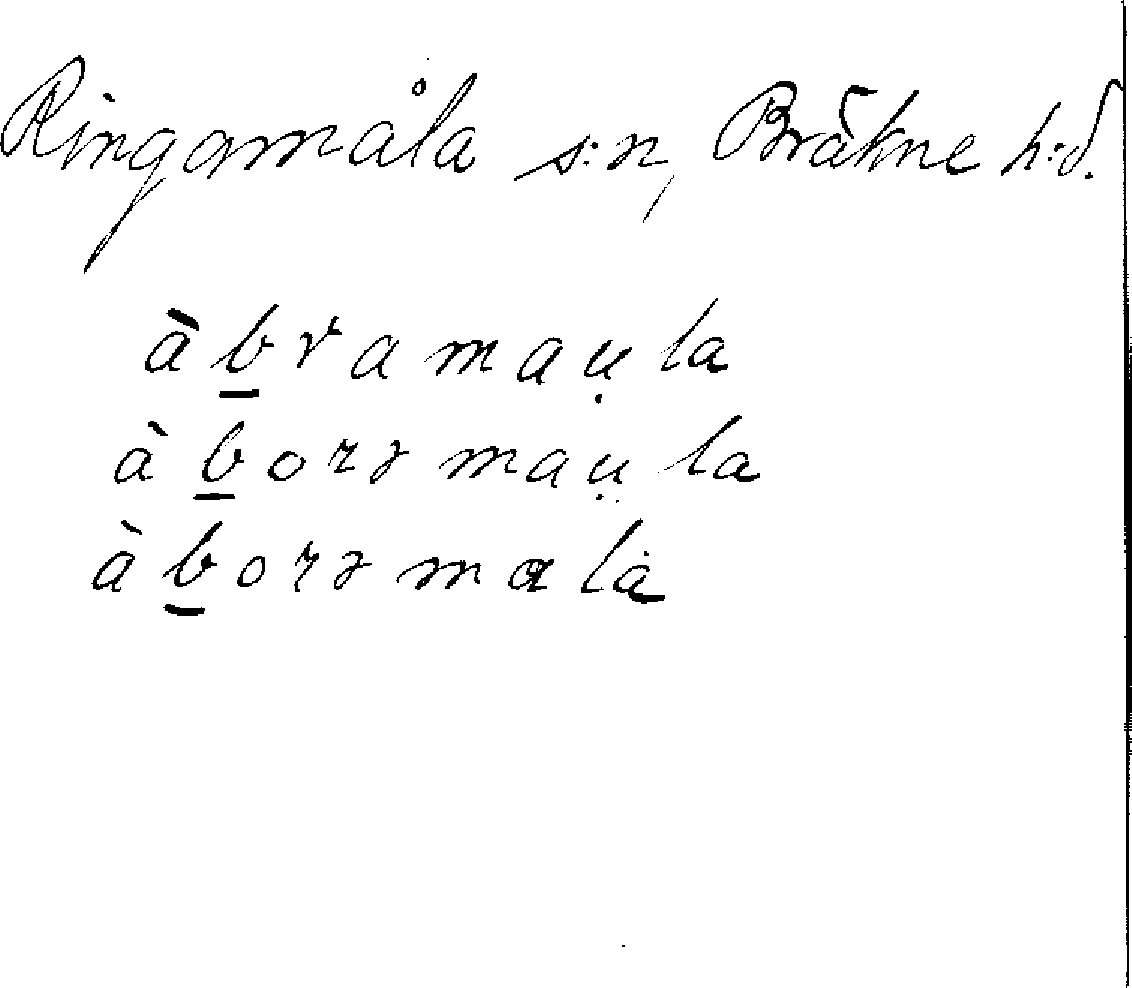 Ringamåla s:n, Bräkne h:d.
àb̲ramaụla
àb̲orəmaṳla
àb̲orəmɑla